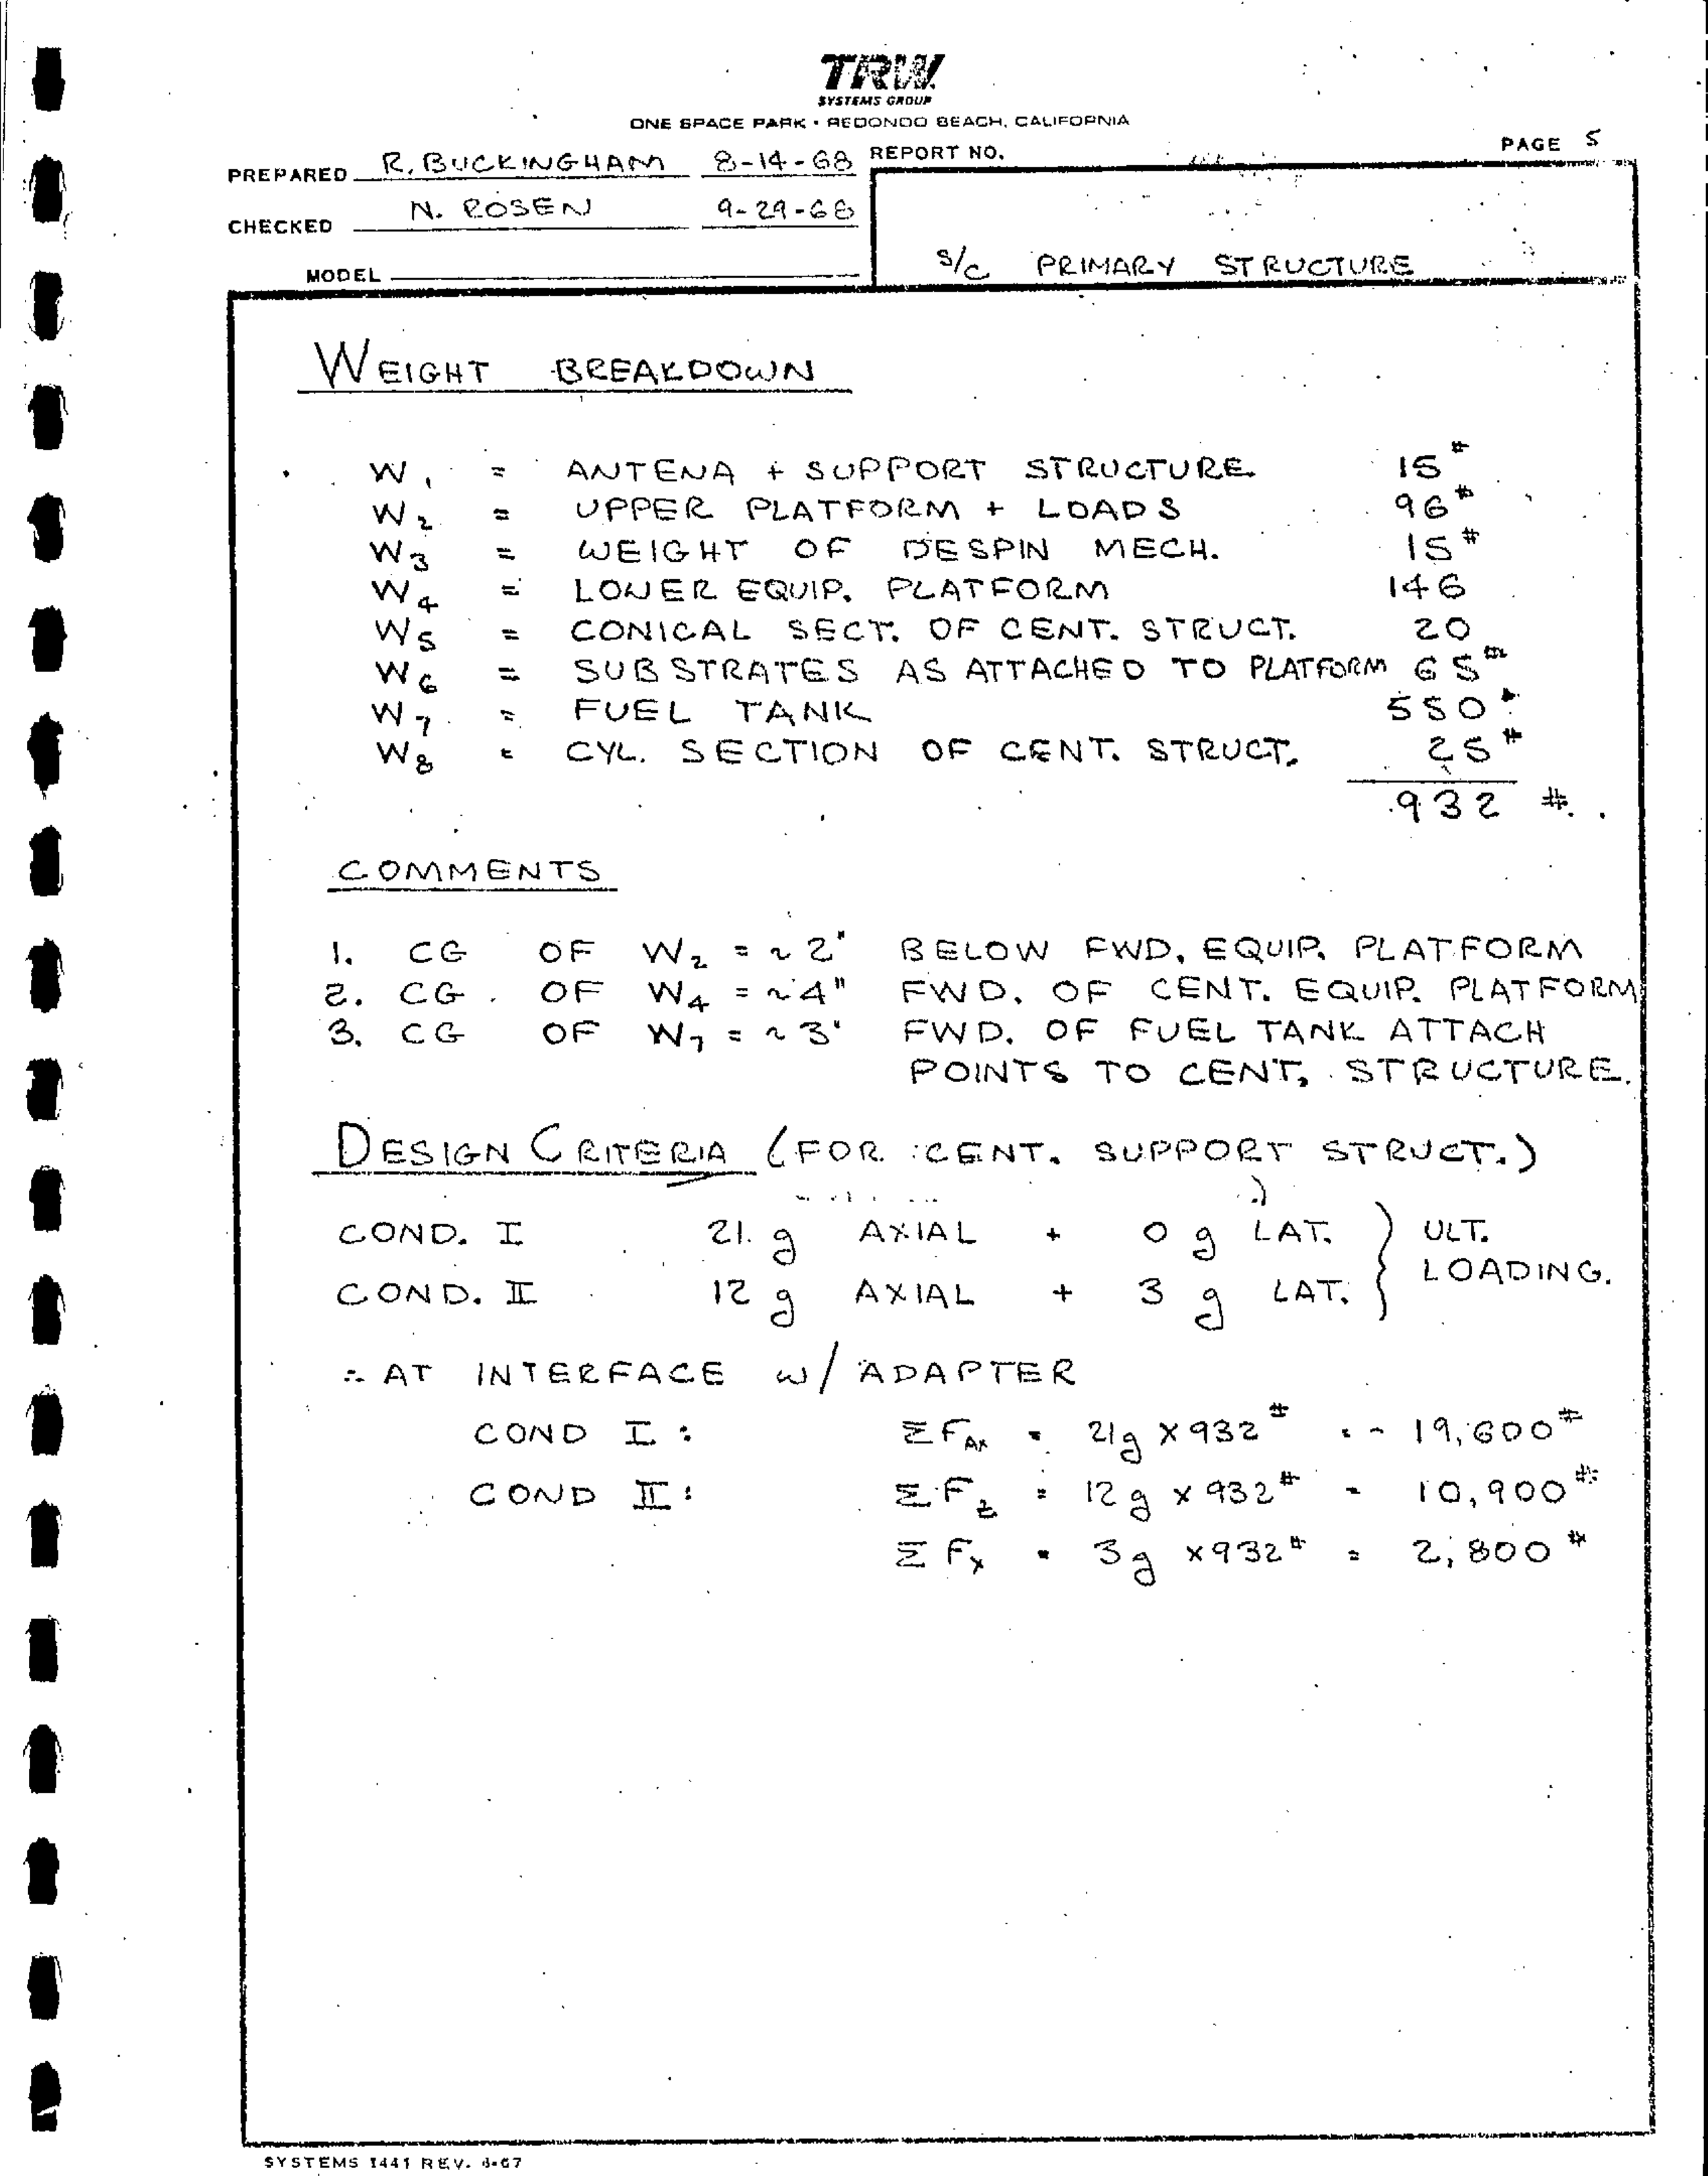 TRW
SYSTEMS GROUP
ONE SPACE PARK • REDONDO BEACH, CALIFORNIA
PAGE 5
PREPARED R. BUCKINGHAM 8-14-68 REPORT NO.
CHECKED N. ROSEN 9-29-68
MODEL
S/C PRIMARY STRUCTURE
WEIGHT BREAKDOWN
W1 = ANTENA + SUPPORT STRUCTURE 15#
W2 = UPPER PLATFORM + LOADS 96#
W3 = WEIGHT OF DESPIN MECH. 15#
W4 = LOWER EQUIP. PLATFORM 146
W5 = CONICAL SECT. OF CENT. STRUCT. 20
W6 = SUBSTRATES AS ATTACHED TO PLATFORM 65#
W7 = FUEL TANK 550#
W8 = CYL. SECTION OF CENT. STRUCT. 25#
932 #
COMMENTS
1. CG OF W2 = ~2" BELOW FWD. EQUIP. PLATFORM
2. CG OF W4 = ~4" FWD. OF CENT. EQUIP. PLATFORM
3. CG OF W7 = ~3" FWD. OF FUEL TANK ATTACH
POINTS TO CENT. STRUCTURE.
DESIGN CRITERIA (FOR CENT. SUPPORT STRUCT.)
COND. I 21. g AXIAL + 0 g LAT. } ULT.
LOADING.
COND. II 12 g AXIAL + 3 g LAT.
∴ AT INTERFACE W/ ADAPTER
COND I: ΣFAX = 21g X 932# = 19,600#
COND II: ΣFz = 12g X 932# = 10,900#
ΣFx = 3g X 932# = 2,800#
SYSTEMS 1441 REV. 8-67